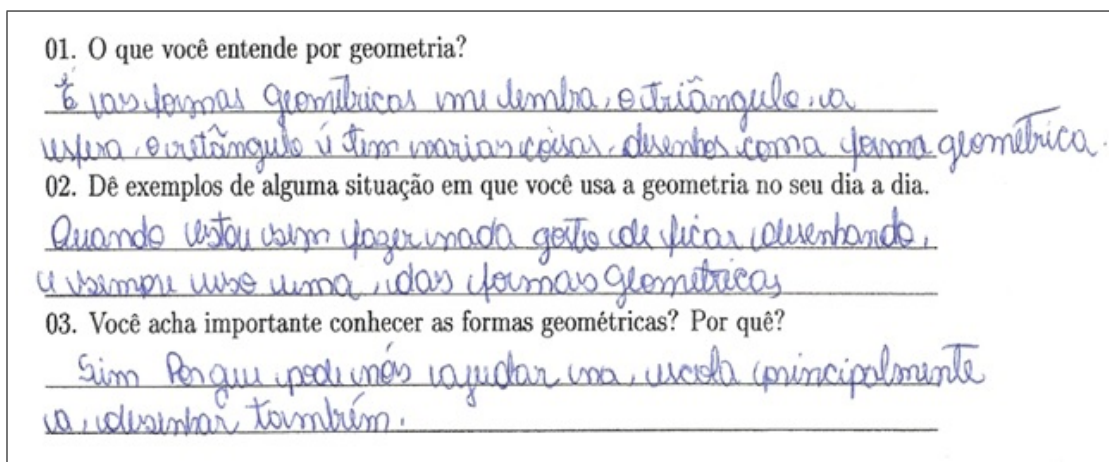 01. O que você entende por geometria?
É as formas geometricas me lembra, o triângulo, a
esfera, o retângulo é tem varias coisas, desenhos com a forma geométrica.
02. Dê exemplos de alguma situação em que você usa a geometria no seu dia a dia.
Quando estou sem fazer nada gosto de ficar desenhando,
e sempre uso uma, das formas geometricas
03. Você acha importante conhecer as formas geométricas? Por quê?
Sim Porque pode nós ajudar na, escola principalmente
a, desenhar também.